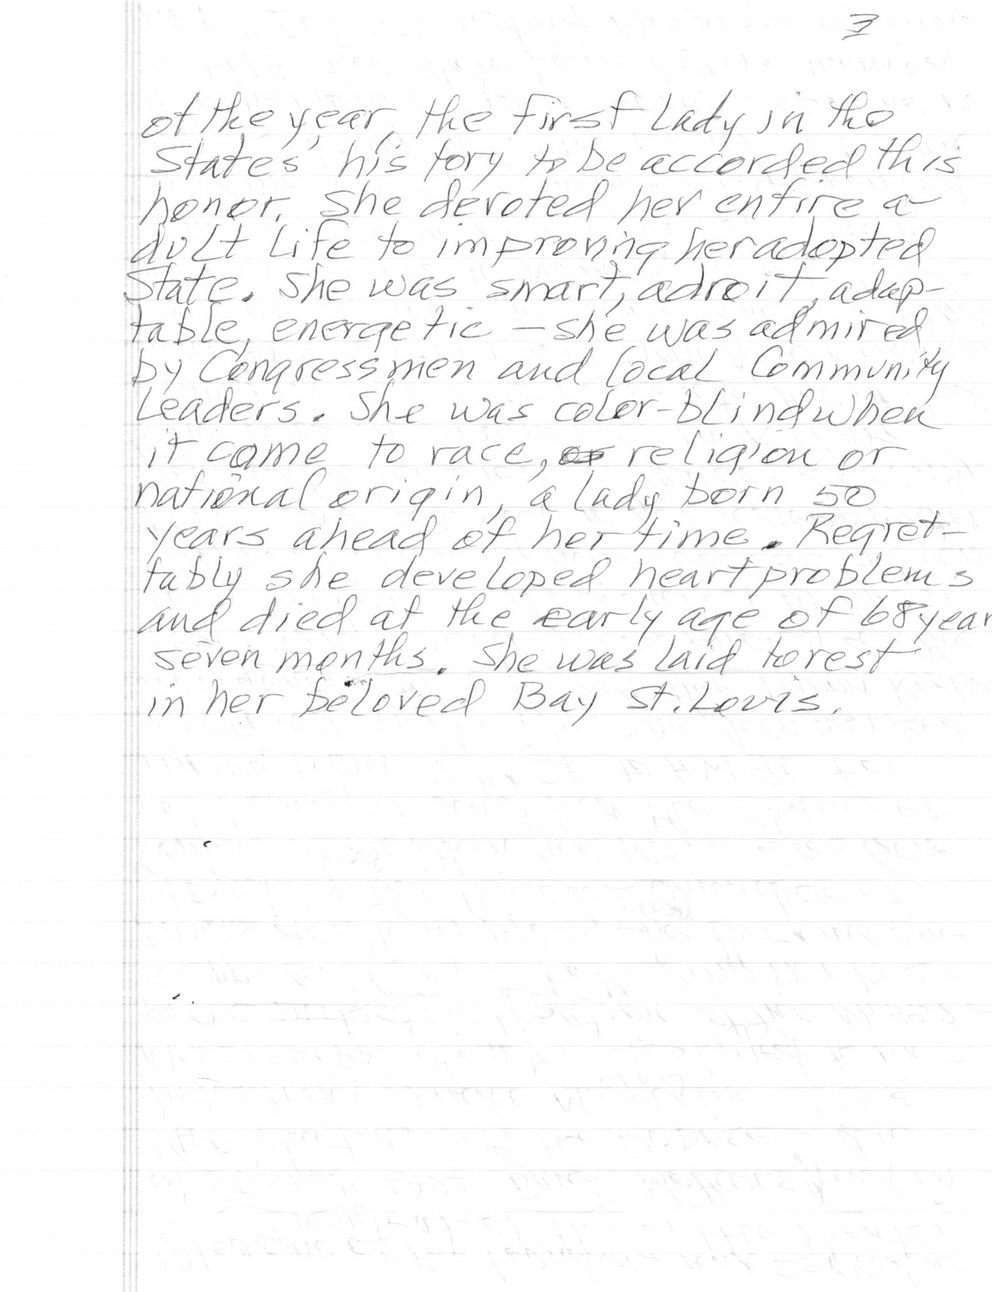 3
of the year, the first Lady in the
States' history to be accorded this
honor. She devoted her entire a-
dult Life to improving her adopted
State. She was smart, adroit, adap-
table, energetic – she was admired
by Congressmen and local Community
Leaders. She was color-blind when
it came to race, or religion or
national origin, a lady born 50
years ahead of her time. Regret-
tably she developed heart problems
and died at the early age of 68 year
seven months. She was laid to rest
in her beloved Bay St. Louis.